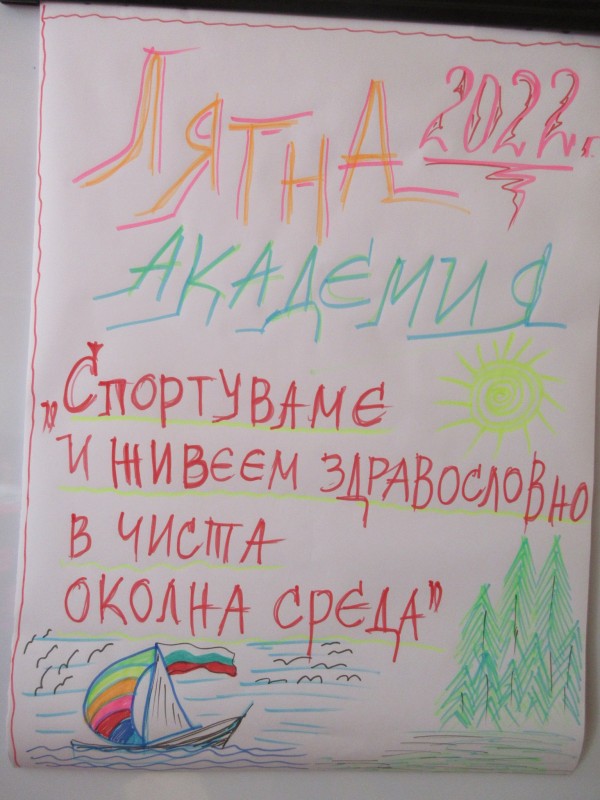 ЛЯТНА 2022г.
АКАДЕМИЯ
„СПОРТУВАМЕ
И ЖИВЕЕМ ЗДРАВОСЛОВНО
В ЧИСТА
ОКОЛНА СРЕДА”